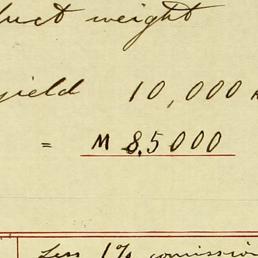 duct weight
yield 10,000
= M 8,5000
Less 1% comission